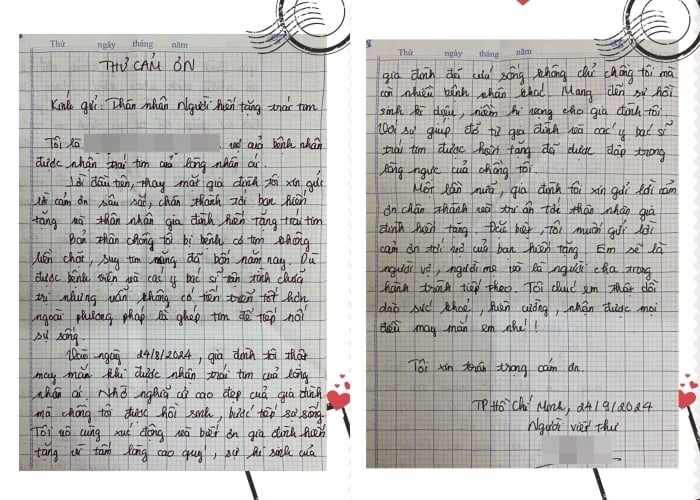 Thứ ngày tháng năm
THƯ CẢM ƠN
Kính gửi: Thân nhân Người hiến tặng trái tim
Tôi là vợ của bệnh nhân
được nhận trái tim của lòng nhân ái.
Lời đầu tiên, thay mặt gia đình tôi xin gửi
lời cảm ơn sâu sắc, chân thành tới bạn hiến
tặng và thân nhân gia đình hiến tặng trái tim.
Bản thân chồng tôi bị bệnh cơ tim không
liền chặt, suy tim nặng đã bốn năm nay. Dù
được bệnh viện và các y bác sĩ tận tình chữa
trị nhưng vẫn không có tiến triển tốt hơn
ngoài phương pháp là ghép tim để tiếp nối
sự sống.
Vào ngày 24/8/2024, gia đình tôi thật
may mắn khi được nhận trái tim của lòng
nhân ái. Nhờ nghĩa cử cao đẹp của gia đình
mà chồng tôi được hồi sinh, bước tiếp sự sống.
Tôi vô cùng xúc động và biết ơn gia đình hiến
tặng vì tấm lòng cao quý, sự hi sinh của
Thứ ngày tháng năm
gia đình đã cứu sống không chỉ chồng tôi mà
còn nhiều bệnh nhân khác. Mang đến sự hồi
sinh kì diệu, niềm hi vọng cho gia đình tôi.
Với sự giúp đỡ từ gia đình và các y bác sĩ
trái tim được hiến tặng đã được đập trong
lồng ngực của chồng tôi.
Một lần nữa, gia đình tôi xin gửi lời cảm
ơn chân thành và tri ân tới thân nhân gia
đình hiến tặng. Đặc biệt, tôi muốn gửi lời
cảm ơn tới vợ của bạn hiến tặng. Em sẽ là
người vợ, người mẹ và là người cha trong
hành trình tiếp theo. Tôi chúc em thật dồi
dào sức khoẻ, kiên cường, nhận được mọi
điều may mắn em nhé!
Tôi xin trân trọng cám ơn.
TP Hồ Chí Minh, 24/9/2024
Người viết thư